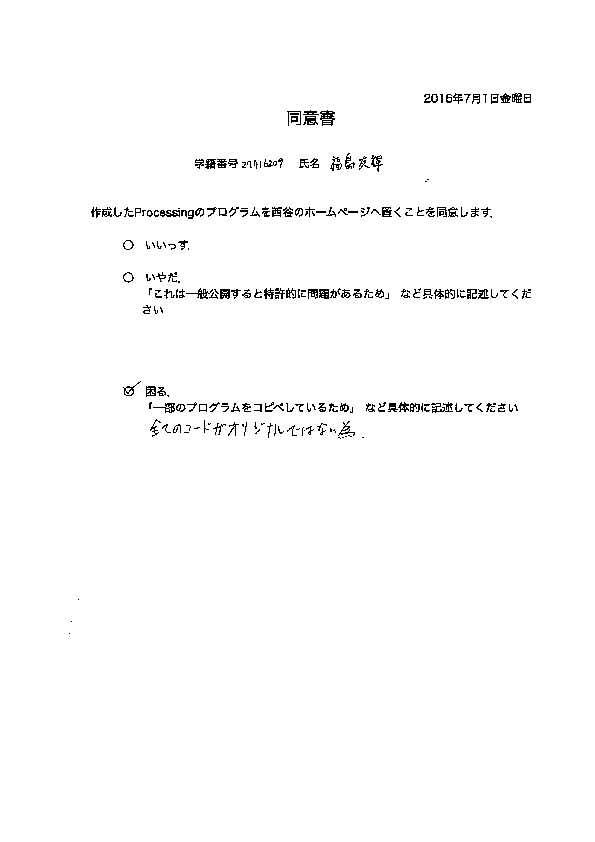 2016年7月1日金曜日
同意書
学籍番号 27416209 氏名 福島
作成したProcessingのプログラムを西谷のホームページへ置くことを同意します.
いいっす.
いやだ.
「これは一般公開すると特許的に問題があるため」 など具体的に記述してくだ
さい
困る.
「一部のプログラムをコピペしているため」 など具体的に記述してください
全てのコードがオリジナルではない為.